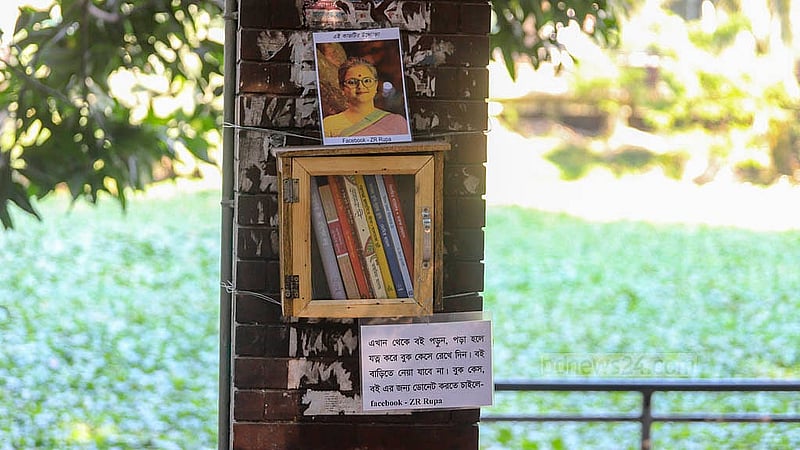 এই কাজটির উদ্যোক্তা
Facebook - ZR Rupa
এখান থেকে বই পড়ুন, পড়া হলে
যত্ন করে বুক কেসে রেখে দিন। বই
বাড়িতে নেয়া যাবে না। বুক কেস,
বই এর জন্য ডোনেট করতে চাইলে-
facebook - ZR Rupa
bdnews24.com